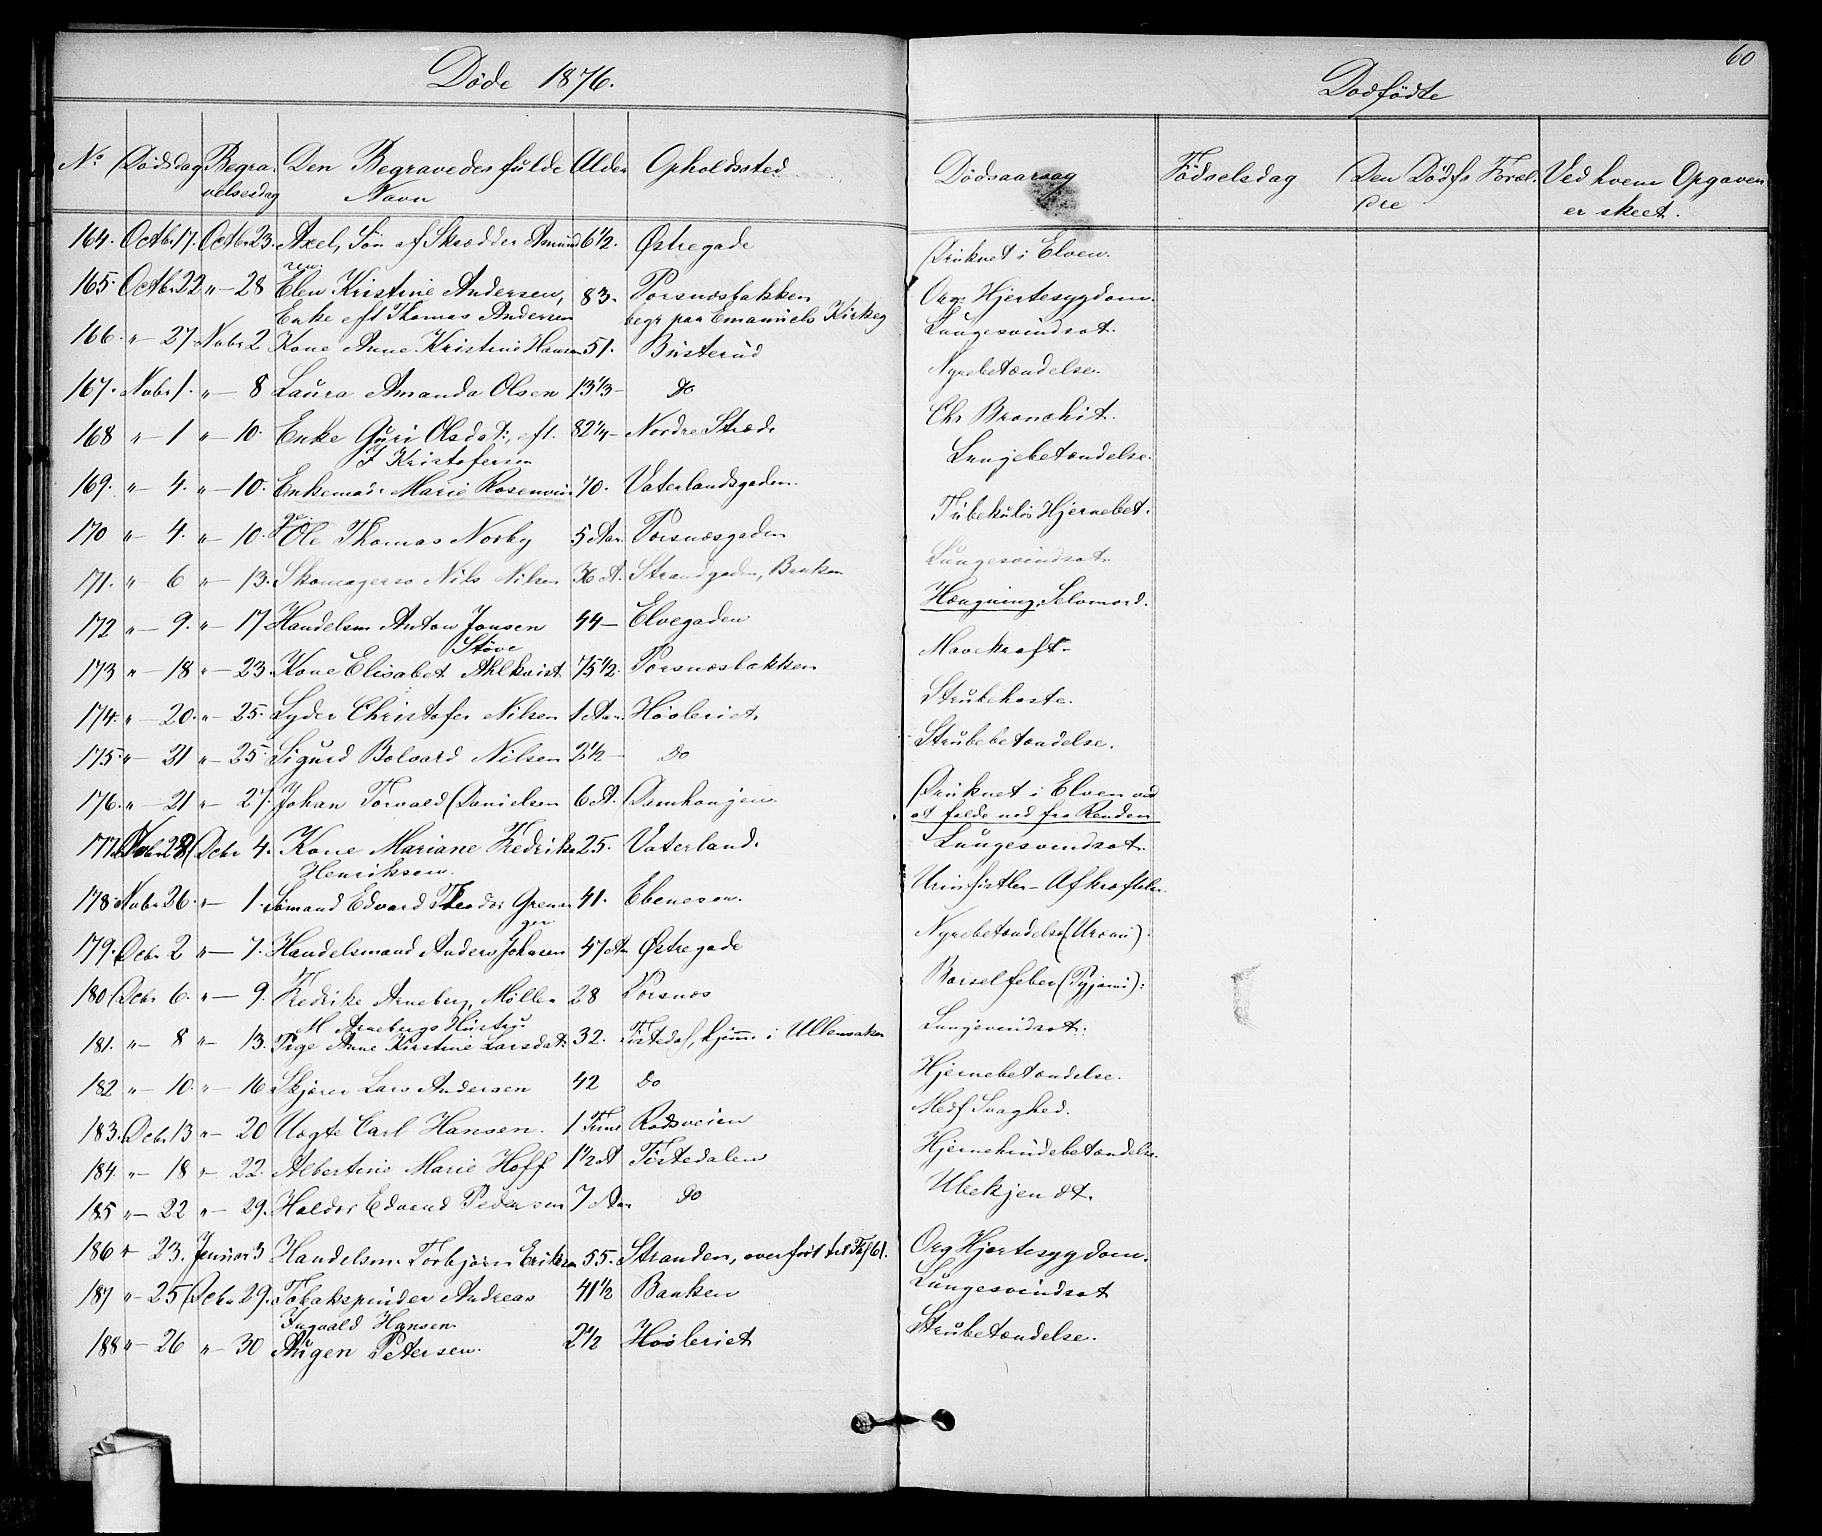 Døde 1876.
No Dødsdag Begravelsesdag Den Begravedes fulde Navn Alder Opholdssted
164. Octbr 17. Octbr 23. Axel, Søn af Skrædder Amundsen. 6 1/2. Østregade
165. Octbr 22 " - 28 Elen Kristine Andersen, 83. Porsnæsbakken
Enke eft Thomas Andersen begr paa Emanuels Kirkeg
166. " 27. Nvbr 2 Kone Anne Kristine Hansen 51. Busterud
167. Nvbr 1. " - 8 Laura Amanda Olsen 13 1/3 - Do
168 " - 1 " - 10. Enke Guri Olsdat:, eft. 82 1/4 - Nordre Stræde
J Kristofersen
169. " - 4. " - 10. Enkemad: Marie Rosenvinge 70. Vaterlandsgaden.
170 " - 4. " - 10. Ole Thomas Norby 5 Aar. Porsnæsgaden
171. " - 6 " - 13. Skomagers Nils Nilsen 36 A. Strandgaden, Banken
172 " - 9. " - 17 Handelsm Anton Jonsen 44 - Elvegaden
Støve
173 " - 18 " - 23. Kone Elisabet Ahlkvist 75 1/2. Porsnæsbakken
174. " - 20. " - 25. Lyder Christofer Nilsen 1 Aar. Høvleriet.
175. " - 21 " - 25. Sigurd Bolvard Nilsen 2 1/2 - Do
176. " - 21 " - 27. Johan Torvald Danielsen 6 A. Damhaugen.
177 Nvbr 28 Dcbr 4. Kone Mariane Fredrikke 25. Vaterland.
Henriksen.
178. Nvbr 26 " - 1. Sømand Edvard Theodor Grenager 41. Ebenesen.
179. Dcbr 2 " - 7. Handelsmand Anders Johnsen 47 Aar Østregade
180 Dcbr 6. " - 9. Fredrike Arneberg, Møller 28 Porsnæs
M Arnebergs Hustru.
181. " - 8 " - 13. Pige Anne Kirstine Larsdat: 32. Tistedal, hjem i Ullensaker
182 " - 10. " - 16 Skjærer Lars Andersen 42 Do
183. Dcbr 13 " - 20 Uøgte Carl Hansen. 1 Time Rødsveien
184. " - 18 " - 22. Albertine Marie Hoff 1 1/2 A Tistedalen
185 " - 22 " - 29. Haldor Edvard Pedersen 7 Aar Do
186 " - 23. Januar 3 Handelsm. Torbjørn Eriksen 55. Stranden, overført til Fol 61.
187 " - 25 Dcbr 29. Tobakspinder Andreas 41 1/2 Banken
Ingvald Hansen.
188 " - 26 " - 30 Augen Petersen. 2 1/2 Høvleriet
60
Dødfødte
Dødsaarsag Fødselsdag Den Dødfs Forældre Ved hvem Opgaven er skeet.
Druknet i Elven.
Org. Hjertesygdom.
Lungesvindsot.
Nyrebetændelse.
Chr Bronchit.
Lungebetændelse.
Tubekuløs Hjernebet.
Lungesvindsot.
Hængning, Selvmord.
Mavekræft -
Strubehoste.
Strubebetændelse.
Druknet i Elven ved
at falde ned fra Renden
Lungesvindsot.
Urinfistler - Afkræftelse.
Nyrebetændelse (Uræmi).
Barselfeber (Pyjæmi).
Lungesvindsot.
Hjernebetændelse.
Medf Svaghed.
Hjernehindebetændelse.
Ubekjendt.
Org Hjertesygdom.
Lungesvindsot
Strubetændelse.